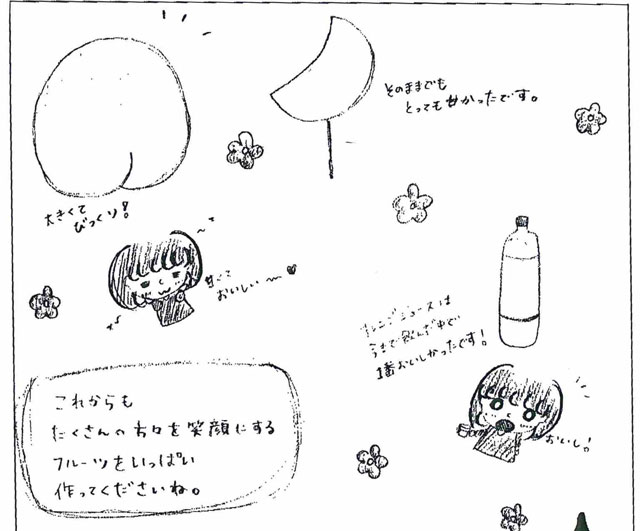 そのままでも
とっても甘かったです。
大きくて
びっくり!
甘くて
おいしい〜
オレンジジュースは
今まで飲んだ中で
1番おいしかったです!
おいし!
これからも
たくさんの方々を笑顔にする
フルーツをいっぱい
作ってくださいね。